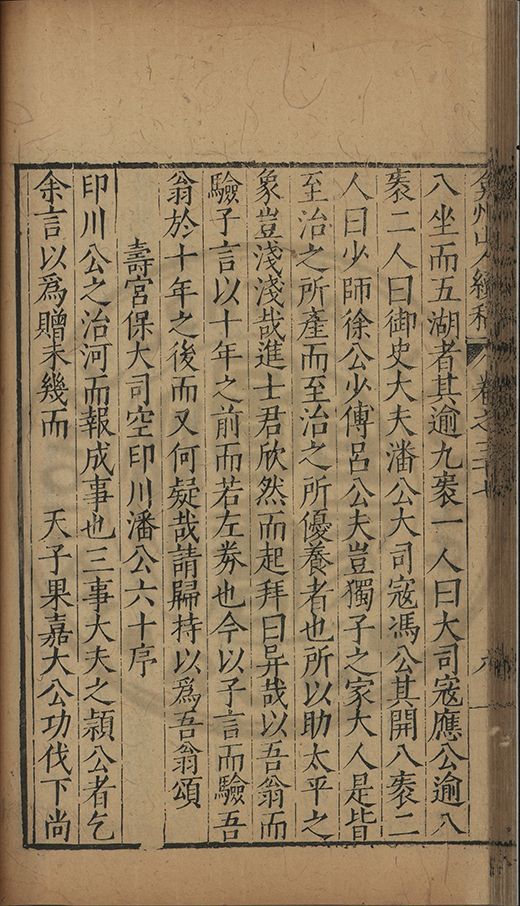 弇州山人續稿 卷之三十七 八
八坐而五湖者其逾九袠一人曰大司寇應公逾八
袠二人曰御史大夫潘公大司寇馮公其開八袠二
人曰少師徐公少傅呂公夫豈獨子之家大人是皆
至治之所產而至治之所優養者也所以助太平之
象豈淺淺哉進士君欣然而起拜曰异哉以吾翁而
驗子言以十年之前而若左券也今以子言而驗吾
翁於十年之後而又何疑哉請歸持以爲吾翁頌
壽宮保大司空印川潘公六十序
印川公之治河而報成事也三事大夫之頴公者乞
余言以爲贈未幾而 天子果嘉大公功伐下尚